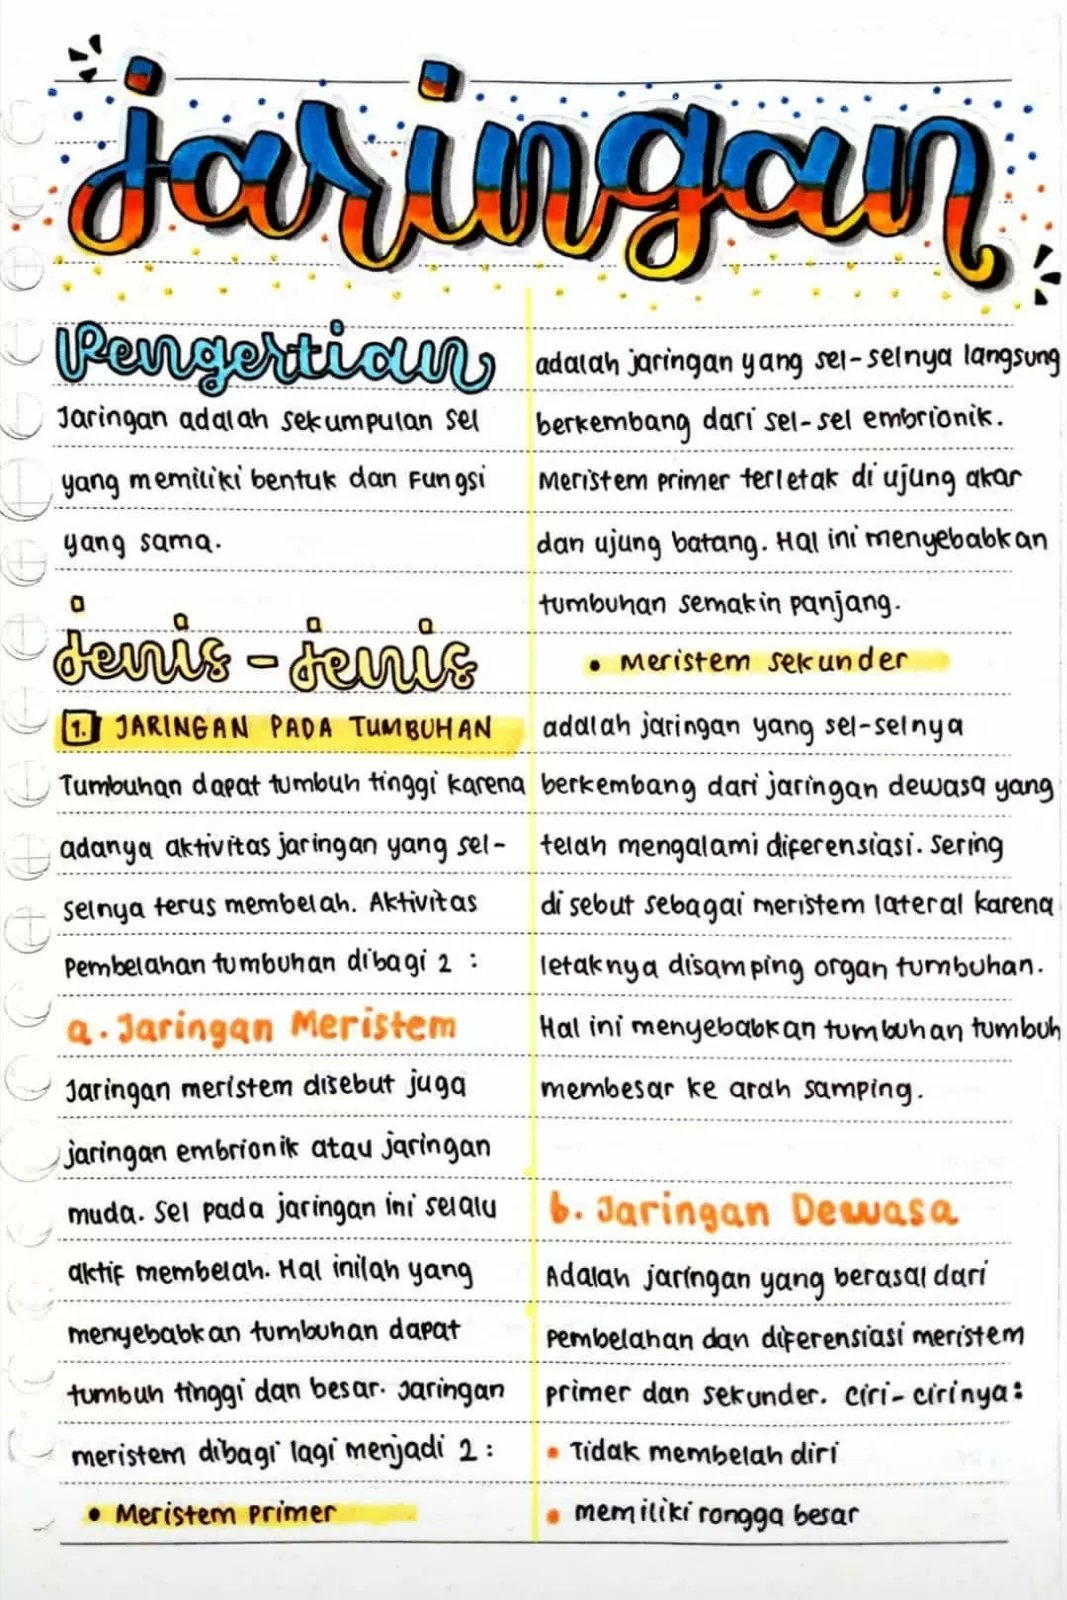 jaringan
Pengertian
Jaringan adalah sekumpulan sel
yang memiliki bentuk dan fungsi
yang sama.
jenis-jenis
1. JARINGAN PADA TUMBUHAN
Tumbuhan dapat tumbuh tinggi karena
adanya aktivitas jaringan yang sel-
selnya terus membelah. Aktivitas
pembelahan tumbuhan dibagi 2 :
a. Jaringan Meristem
Jaringan meristem disebut juga
jaringan embrionik atau jaringan
muda. Sel pada jaringan ini selalu
aktif membelah. Hal inilah yang
menyebabkan tumbuhan dapat
tumbuh tinggi dan besar. Jaringan
meristem dibagi lagi menjadi 2 :
• Meristem primer
adalah jaringan yang sel-selnya langsung
berkembang dari sel-sel embrionik.
Meristem primer terletak di ujung akar
dan ujung batang. Hal ini menyebabkan
tumbuhan semakin panjang.
• Meristem sekunder
adalah jaringan yang sel-selnya
berkembang dari jaringan dewasa yang
telah mengalami diferensiasi. Sering
disebut sebagai meristem lateral karena
letaknya disamping organ tumbuhan.
Hal ini menyebabkan tumbuhan tumbuh
membesar ke arah samping.
b. Jaringan Dewasa
Adalah jaringan yang berasal dari
pembelahan dan diferensiasi meristem
primer dan sekunder. Ciri-cirinya:
• Tidak membelah diri
• memiliki rongga besar